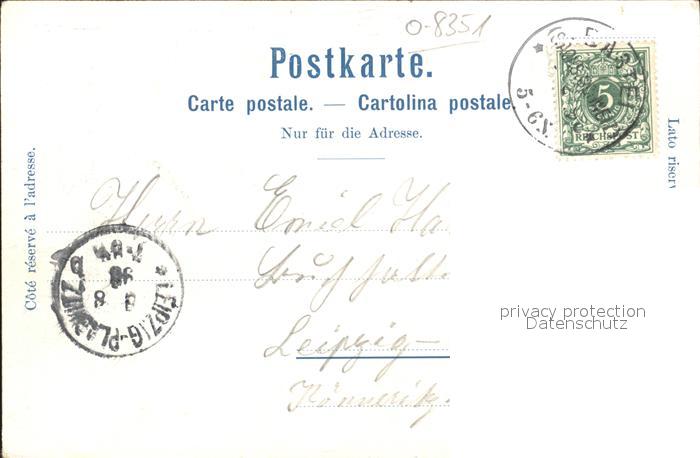 0-8351
Postkarte.
Carte postale. — Cartolina postale.
Nur für die Adresse.
BASTEI
5-6N.
5
REICHSPOST
Côté réservé à l'adresse.
Lato riserv
Herrn Emil Ha
Buchhalt
Leipzig-
Könneritz
LEIPZIG-PLAGWITZ
7-8V
98
privacy protection
Datenschutz